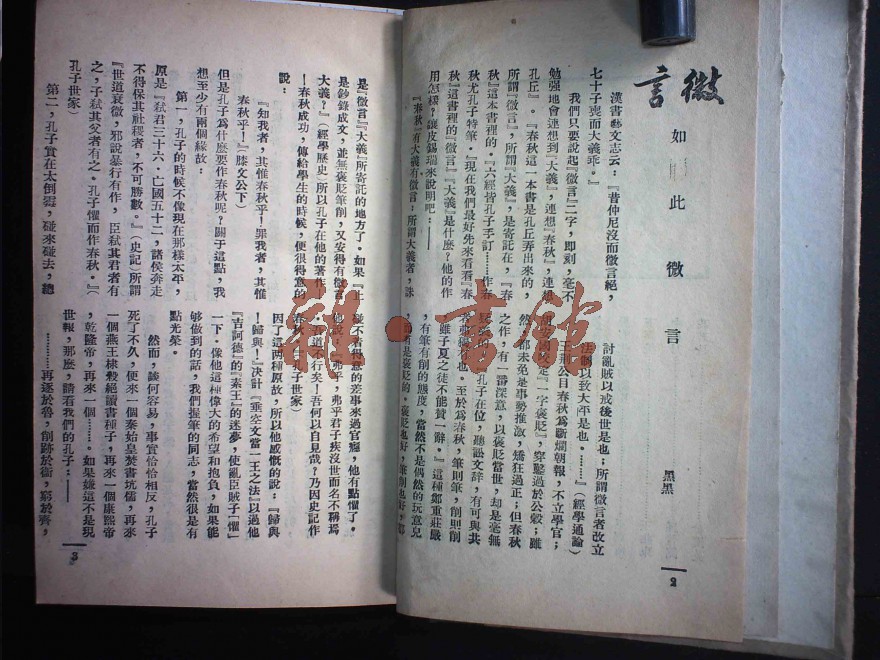 微言
如此微言
黑黑
漢書藝文志云：『昔仲尼沒而微言絕，
七十子喪而大義乖。』
我們只要說起『微言』二字，即刻，毫不
勉强地會連想到『大義』，連想『春秋』，連想
孔丘。『春秋』這一本書是孔丘弄出來的，
所謂『微言』，所謂『大義』，是寄託在，『春
秋』這本書裡的。『六經皆孔子手訂……作春
秋尤孔子特筆。』現在我們最好先來看看『春
秋』這書裡的『微言』『大義』是什麼？他的作
用怎樣？讓皮錫瑞來說明吧：——
『春秋』有大義有微言；所謂大義者，誅
討亂賊以戒後世是也；所謂微言者改立
法制以致太平是也。……』（經學通論）
王荆公目春秋爲斷爛朝報，不立學官；
『一字褒貶』，穿鑿過於公穀；雖
然，都未免是事勢推激，矯狂過正；但春秋
之作，有一番深意，以褒貶當世，却是毫無
孔子在位，聽訟文辭，有可與共
者弗獨有也。至於爲春秋，筆則筆，削則削
雖子夏之徒不能贊一辭。』這種鄭重莊嚴
，有筆有削的態度，當然不是偶然的玩意兒
是褒貶的。褒貶也好，筆削也好，都
是『微言』『大義』所寄託的地方了。如果『上
是鈔錄成文，並無褒貶筆削，又安得有微言
大義？』（經學歷史）所以孔子在他的著作—
—春秋成功，傳給學生的時候，便很得意的
說：
『知我者，其惟春秋乎！罪我者，其惟
春秋乎！』（滕文公下）
但是孔子爲什麼要作春秋呢？關于這點，我
想至少有兩個緣故：
第一，孔子的時候不像現在那樣太平，
原是『弑君三十六，亡國五十二，諸侯奔走
不得保其社稷者，不可勝數。』（史記）所謂
『世道衰微，邪說暴行有作，臣弑其君者有
之，子弑其父者有之。孔子懼而作春秋。』（
孔子世家）
第二，孔子實在太倒霉，碰來碰去，總
碰不着得意的差事來過官癮，他有點懼了。
他說：『弗乎，弗乎君子疾沒世而名不稱焉
。吾道不行矣！吾何以自見哉？乃因史記作
春秋』（孔子世家）
因了這两種原故，所以他感慨的說：『歸與
！歸與！』决計『垂空文當一王之法』以過他
『吉訶德』的『素王』的迷夢，使亂臣賊子『懼』
一下。像他這種偉大的希望和抱負，如果能
够做到的話，我們握筆的同志，當然很是有
點光榮。
然而，談何容易，事實恰恰相反，孔子
死了不久，便來一個秦始皇焚書坑儒，再來
一個燕王棣殺絕讀書種子，再來一個康熙帝
，乾隆帝，再來一個……。如果嫌這不是現
世報，那麽，請看我們的孔子：——
………再逐於魯，削跡於衞，窮於齊，
2
3
龍·書館